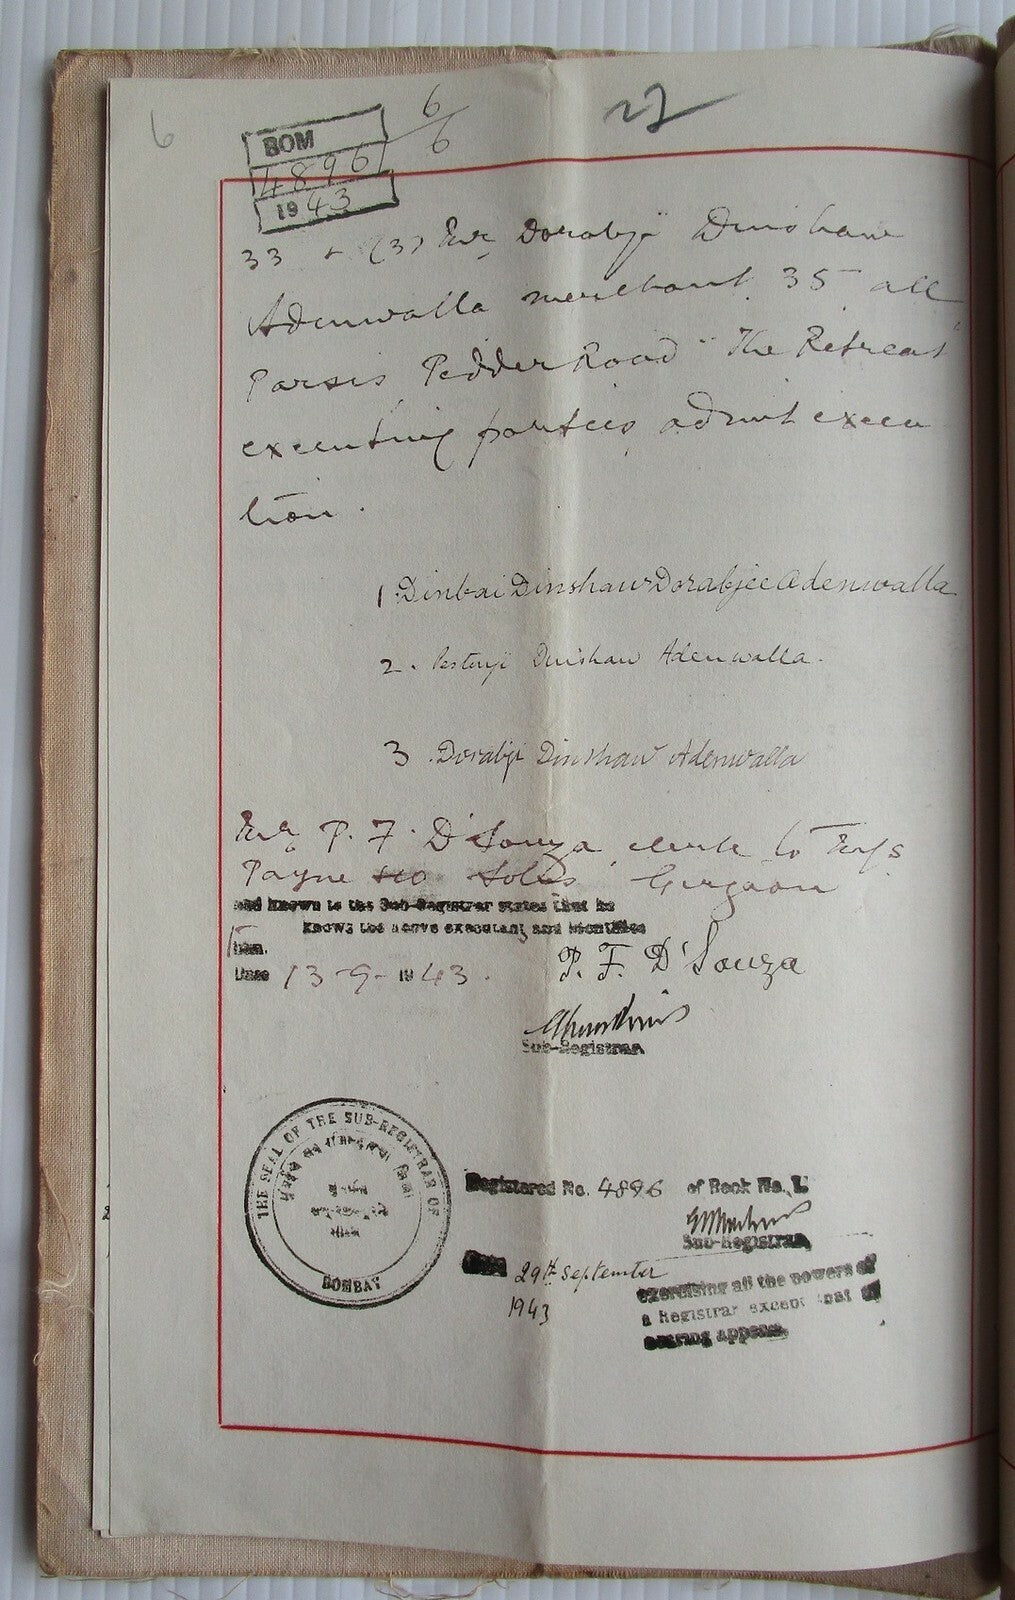 6
BOM
4896
1943
6/6
27
33 & (3) Mr. Dorabji Dinshaw
Adenwalla merchant 35 all
Parsis Pedder Road "The Retreat"
executing parties admit execu
tion.
1. Dinbai Dinshaw Dorabjee Adenwalla
2. Pestonji Dinshaw Adenwalla.
3. Dorabji Dinshaw Adenwalla
Mr. P. F. D'Souza clerk to
Payne Solrs Girgaon
and known to the Sub-Registrar states that he
knows the above executant and identifies
them.
Date 13-9-1943.
P. F. D'Souza
Sub-Registrar
THE SEAL OF THE SUB-REGISTRAR OF
BOMBAY
Registered No. 4896 of Book No. I.
Sub-Registrar,
Date 29th September
1943
exercising all the powers of
a Registrar except that of
hearing appeals.